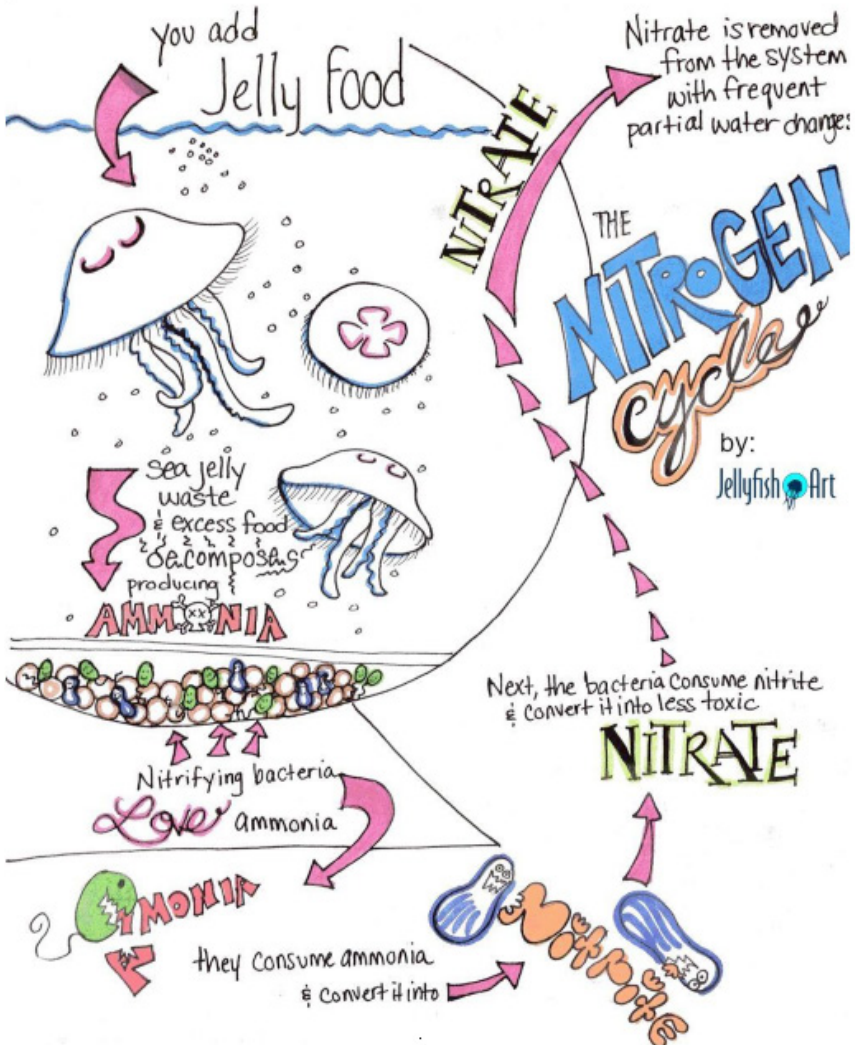 you add
Jelly Food
NITRATE
Nitrate is removed
from the system
with frequent
partial water changes
THE
NITROGEN
cycle
by:
Jellyfish Art
sea jelly
waste
& excess food
decomposes
producing
AMMONIA
Nitrifying bacteria
Love ammonia
AMMONIA
they consume ammonia
& convert it into
Nitrite
Nitrite
Next, the bacteria consume nitrite
& convert it into less toxic
NITRATE